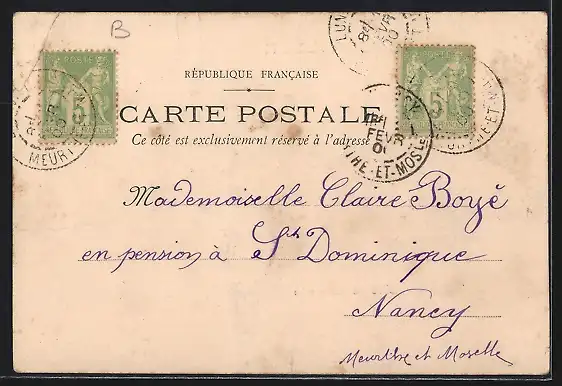 B
RÉPUBLIQUE FRANÇAISE
CARTE POSTALE
Ce côté est exclusivement réservé à l'adresse
POSTE
5
5
MEURT
LUN
FEVR
FEVR
01
THE-ET-MOSE
Mademoiselle Claire Boyé
en pension à St Dominique
Nancy
Meurthe et Moselle